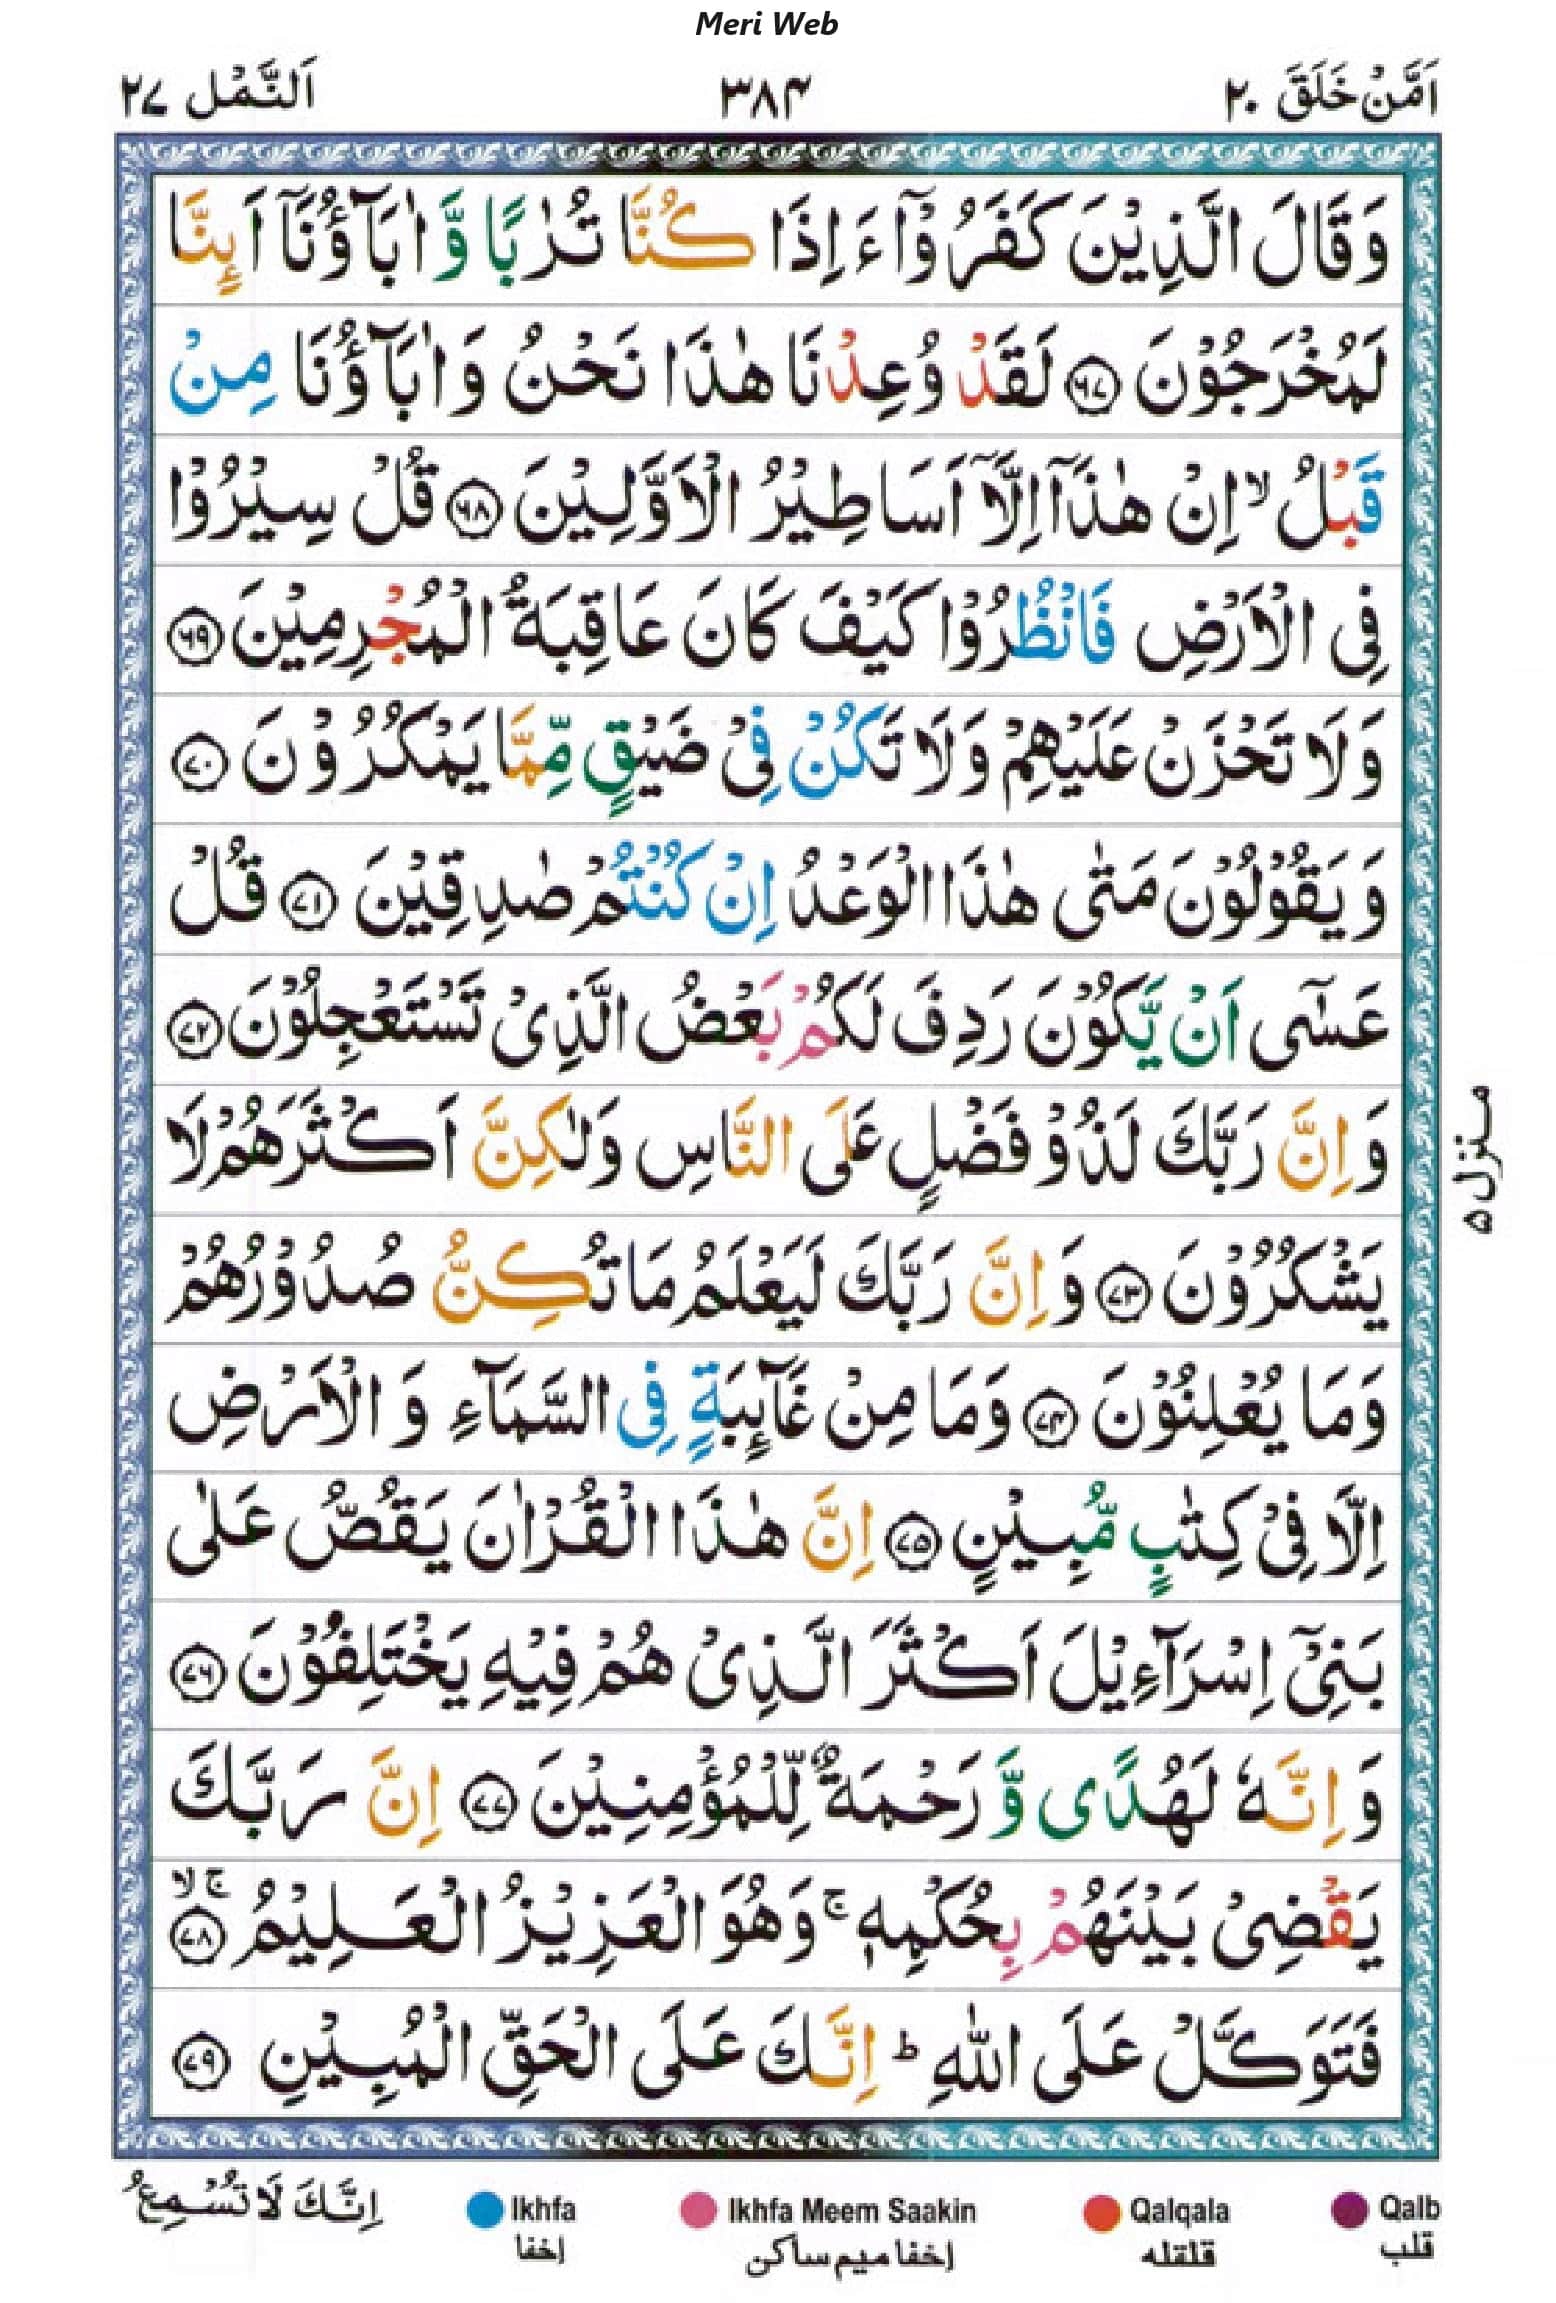 Meri Web
اَمَّنْ خَلَقَ ۲۰
۳۸۴
اَلنَّمْل ۲۷
وَقَالَ الَّذِيْنَ كَفَرُوْٓا ءَاِذَا كُنَّا تُرٰبًا وَّ اٰبَآؤُنَآ اَئِنَّا
لَمُخْرَجُوْنَ ۶۷ لَقَدْ وُعِدْنَا هٰذَا نَحْنُ وَاٰبَآؤُنَا مِنْ
قَبْلُ ۙ اِنْ هٰذَآ اِلَّآ اَسَاطِيْرُ الْاَوَّلِيْنَ ۶۸ قُلْ سِيْرُوْا
فِى الْاَرْضِ فَانْظُرُوْا كَيْفَ كَانَ عَاقِبَةُ الْمُجْرِمِيْنَ ۶۹
وَلَا تَحْزَنْ عَلَيْهِمْ وَلَا تَكُنْ فِىْ ضَيْقٍ مِّمَّا يَمْكُرُوْنَ ۷۰
وَيَقُوْلُوْنَ مَتٰى هٰذَا الْوَعْدُ اِنْ كُنْتُمْ صٰدِقِيْنَ ۷۱ قُلْ
عَسٰٓى اَنْ يَّكُوْنَ رَدِفَ لَكُمْ بَعْضُ الَّذِىْ تَسْتَعْجِلُوْنَ ۷۲
وَاِنَّ رَبَّكَ لَذُوْ فَضْلٍ عَلَى النَّاسِ وَلٰكِنَّ اَكْثَرَهُمْ لَا
يَشْكُرُوْنَ ۷۳ وَاِنَّ رَبَّكَ لَيَعْلَمُ مَا تُكِنُّ صُدُوْرُهُمْ
وَمَا يُعْلِنُوْنَ ۷۴ وَمَا مِنْ غَآئِبَةٍ فِى السَّمَآءِ وَ الْاَرْضِ
اِلَّا فِىْ كِتٰبٍ مُّبِيْنٍ ۷۵ اِنَّ هٰذَا الْقُرْاٰنَ يَقُصُّ عَلٰى
بَنِىْٓ اِسْرَآءِيْلَ اَكْثَرَ الَّذِىْ هُمْ فِيْهِ يَخْتَلِفُوْنَ ۷۶
وَاِنَّهٗ لَهُدًى وَّ رَحْمَةٌ لِّلْمُؤْمِنِيْنَ ۷۷ اِنَّ رَبَّكَ
يَقْضِىْ بَيْنَهُمْ بِحُكْمِهٖ ۚ وَهُوَ الْعَزِيْزُ الْعَلِيْمُ ۷۸ ۚ ۙ
فَتَوَكَّلْ عَلَى اللّٰهِ ؕ اِنَّكَ عَلَى الْحَقِّ الْمُبِيْنِ ۷۹
منزل ۵
اِنَّكَ لَا تُسْمِعُ
Ikhfa
Ikhfa Meem Saakin
Qalqala
Qalb
إخفا
إخفا ميم ساكن
قلقله
قلب